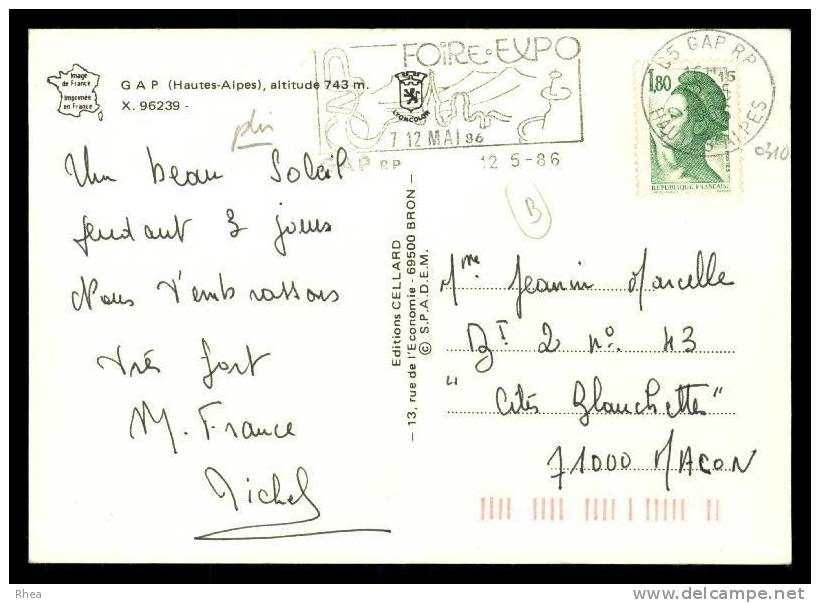 Image
de France
Imprimée
en France
GAP (Hautes-Alpes), altitude 743 m.
X. 96239 -
plu
Un beau Soleil
pendant 3 jours
Nous t'embrassons
très fort
M. France
Michel
FOIRE-EXPO
GAP
LYONCOLOR
7 12 MAI 86
GAP RP
12 5-86
05 GAP RP
HAUTES ALPES
1,80
REPUBLIQUE FRANÇAISE
0310
B
Editions CELLARD
— 13, rue de l'Economie - 69500 BRON —
© S.P.A.D.E.M.
Mme Jeanin Marcelle
BT 2 no. 43
"Cités Blanchettes"
71000 MACON
Rhea
www.delcampe.net